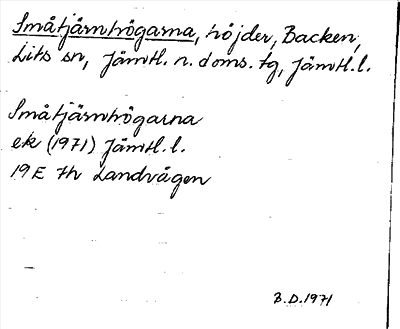 Småtjärnhögarna, höjder, Backen,
Lits sn, Jämtl. n. doms. tg, Jämtl. l.
Småtjärnhögarna
ek (1971) Jämtl. l.
19E 7h Landvågen
B.D. 1971